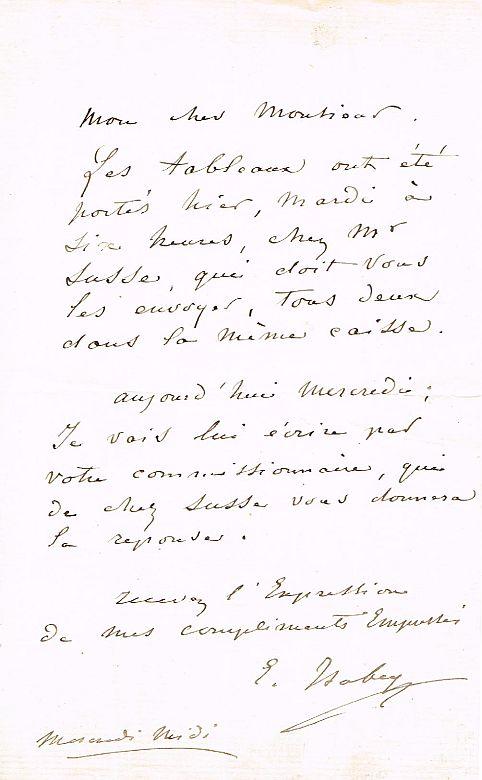 Mon cher Monsieur.
Les tableaux ont été
portés hier, mardi à
six heures, chez Mr
Susse, qui doit vous
les envoyer, tous deux
dans la même caisse.
aujourd'hui mercredi;
Je vais lui écrire par
votre commissionnaire, qui
de chez Susse vous donnera
la reponse.
recevez l'Expression
de mes compliments Empressés
E. Isabey
Mercredi Midi